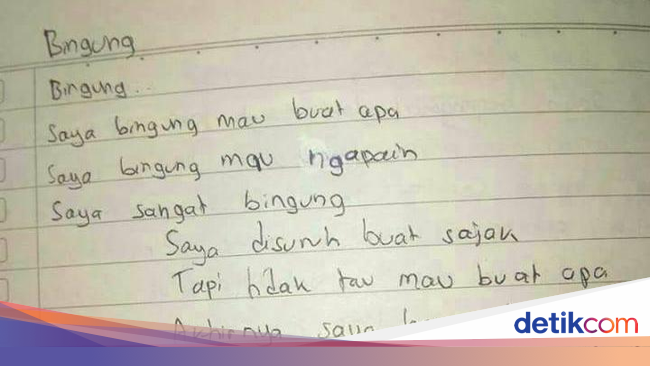 Bingung
Bingung..
Saya bingung mau buat apa
Saya bingung mau ngapain
Saya sangat bingung
Saya disuruh buat sajak
Tapi tidak tau mau buat apa
Akhirnya saya
detikcom